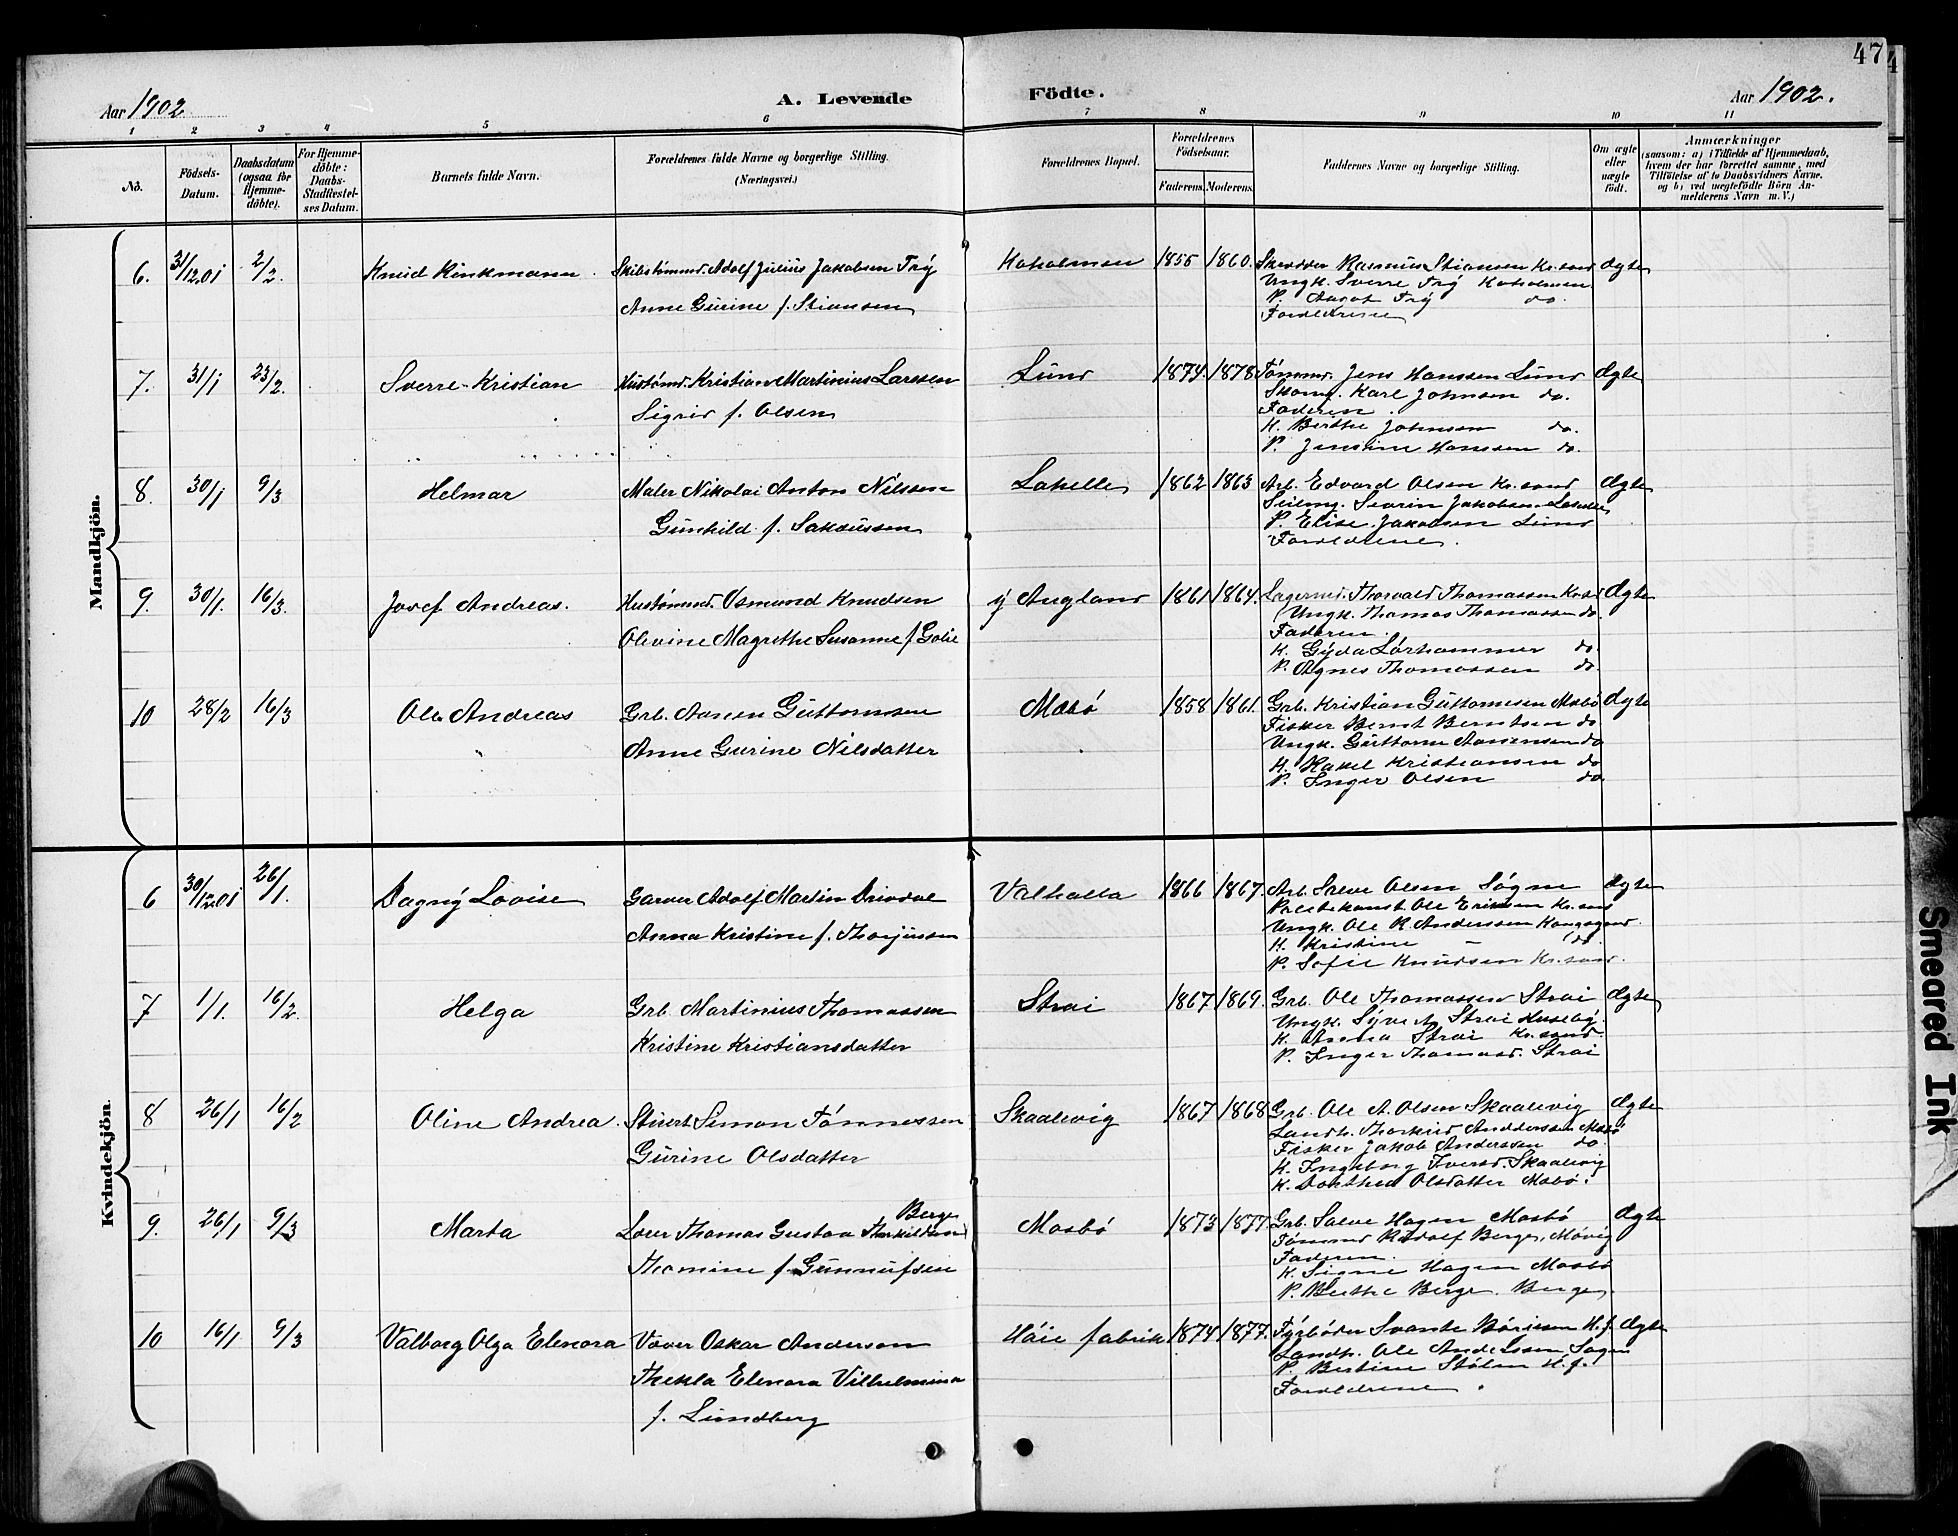 47
Aar 1902
A. Levende
Födte.
Aar 1902.
1 2 3 4 5 6 7 8 9 10 11
No.
Födsels-Datum.
Daabsdatum (ogsaa for Hjemme-döbte).
For Hjemme-döbte: Daabs-Stadfæstel-ses Datum.
Barnets fulde Navn.
Forældrenes fulde Navne og borgerlige Stilling. (Næringsvei.)
Forældrenes Bopæl.
Forældrenes Födselsaar.
Faderens. Moderens.
Faddernes Navne og borgerlige Stilling.
Om ægte eller uægte födt.
Anmærkninger
(saasom: a) i Tilfælde af Hjemmedaab,
hvem der har forrettet samme, med
Tilföielse af to Daabsvidners Navne.
og b) ved uægtefödte Börn An-
melderens Navn m. V.)
Mandkjön.
6. 31/12.01 2/2. Knud Kinkmann. Skibstømmd. Adolf Julius Jakobsen Frÿ
Anne Gurine f. Stiansen
Koholmen 1855 1860.
Skrædder Rasmus Stiansen Kr.sand Ægte
Ungk. Sverre Frÿ Koholmen
P. Aagot Frÿ do.
Forældrene
7. 31/1 23/2. Sverre Kristian
Hustømd. Kristian Martinius Larssen
Sigrid f. Olsen
Lund 1874 1878
Tømmd. Jens Hanssen Lund Ægte
Skom. Karl Johnsen do.
Faderen.
K. Berthe Johnsen do.
P. Jensine Hanssen do.
8. 30/1 9/3 Helmar
Maler Nikolai Anton Nilssen
Gunhild f. Sakæussen
Lahelle 1862 1863
Arb. Edvard Olsen Kr.sand Ægte
Seilmg. Severin Jakobsen Lahelle
P. Elise Jakobsen Lund
Forældrene.
9. 30/1. 16/3. Josef Andreas.
Hustømmd. Osmund Knudsen
Olevine Magrethe Susanne f. Golie
y Augland 1861 1864.
Lagermd. Thorvald Thomassen Kr.sd Ægte
Ungk. Thomas Thomassen do.
Faderen.
K. Gÿda Sørhammer do.
P. Agnes Thomassen do.
10 28/2 16/3 Ole Andreas
Grb. Aanen Guttormsen
Anne Gurine Nilsdatter
Mosbø 1858 1861.
Grb. Kristian Guttormsen Mosbø Ægte
Fisker Bernt Berntsen do
Ungk. Guttorm Aanensen do
K. Rakel Kristiansen do
P. Inger Olsen do
Kvindekjön.
6 30/12.01 26/1. Dagnÿ Lovise
Garver Adolf Martin Drivdal
Anna Kristine f. Thorjussen
Valhalla 1866 1867.
Arb. Salve Olsen Søgne Ægte
Ole Eriksen Kr.sand
Ungk. Ole R. Anderssen Kongsgaard.
K. Kristine – do.
P. Sofie Knudsen Kr.sand.
7 1/1. 16/2. Helga
Grb. Martinius Thomassen
Kristine Kristiansdatter
Strai 1867 1869.
Grb. Ole Thomassen Strai Ægte
Ungk. A. Strai Husebÿ.
K. Strai Kr.sand.
P. Inger Thomasd. Strai
8 26/1 16/2 Oline Andrea.
Stuert Simon Tønnessen
Gurine Olsdatter
Skaalevig 1867 1868
Grb. Ole A. Olsen Skaalevig Ægte
Landh. Anderssen Mosbø
Fisker Jakob Anderssen do.
K. Ingeborg Iversd. Skaalevig
K. Dorthea Olsdatter Mosbø.
9. 26/1 9/3 Marta
Berge
Thomas Gustav Therkildsen
Thomine f. Gunnufsen
Mosbø 1873 1877.
Grb. Salve Hagen Mosbø Ægte
Tømmd Rudolf Berge, Møvig
Faderen.
K. Signe Hagen Mosbø
P. Berthe Berge. Berge.
10 16/1 9/3 Valborg Olga Elenora
Væver Oskar Anderson
Thekla Elenora Vilhelmina
f. Lundberg
Høie fabrik 1874 1877.
Fyrbøder Svante Børjesen H.f. Ægte
Landh. Ole Anderssen,
P. Bertine Stølen H.f.
Forældrene.
Smeared Ink